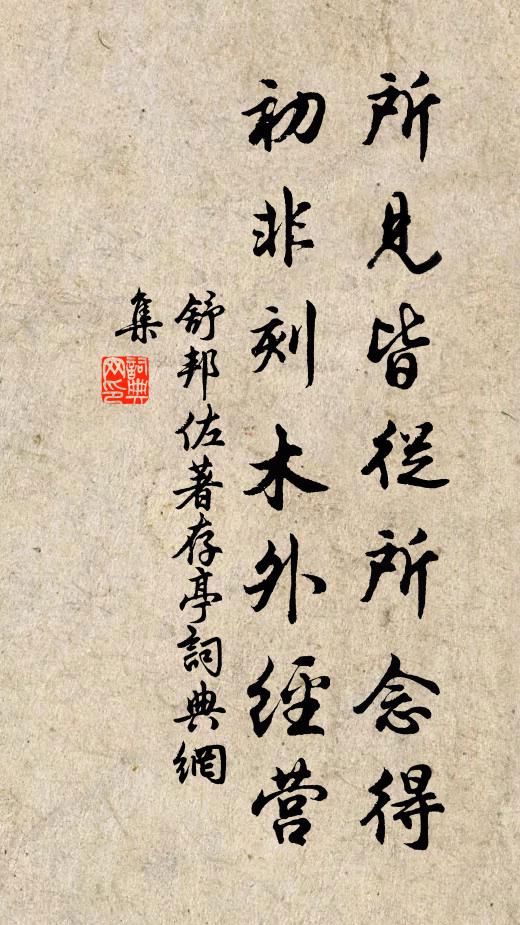 所見皆從所念得
初非刻木外經营
舒邦佐著存亭詞典網
集
詞典
网印